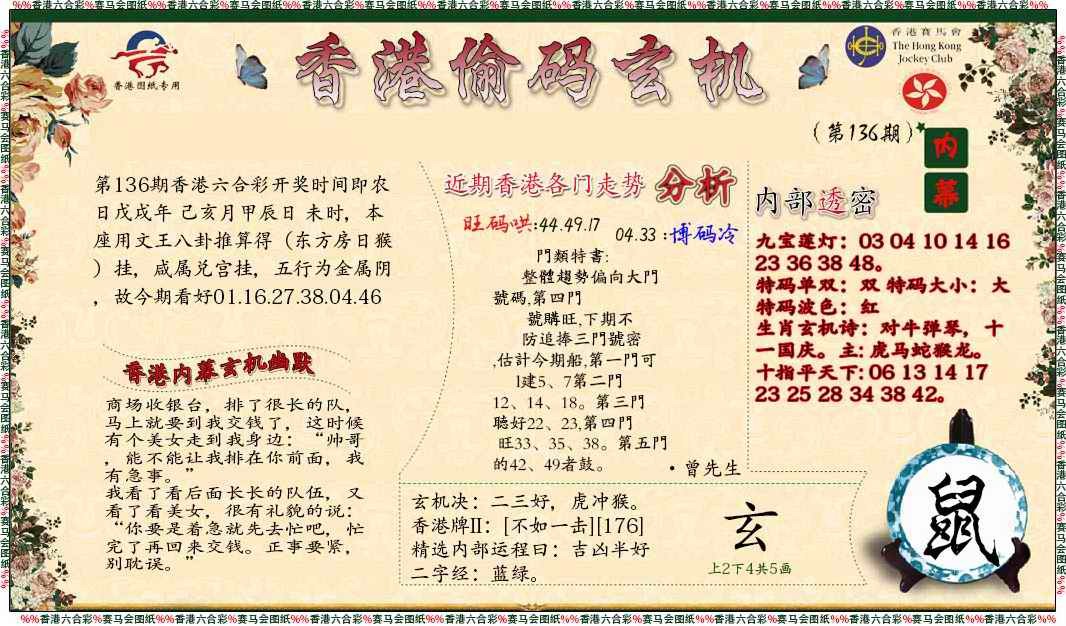 %%香港六合彩%赛马会图纸%%香港六合彩%赛马会图纸%%香港六合彩%赛马会图纸%%香港六合彩%赛马会图纸%%香港六合彩%赛马会图纸%%香港六合彩%赛马会图纸%%香港六合彩%%
香港图纸专用
香港偷码玄机
香港賽馬會
The Hong Kong
Jockey Club
(第136期)
内
幕
第136期香港六合彩开奖时间即农
日戊戌年 己亥月甲辰日 未时，本
座用文王八卦推算得（东方房日猴
）挂，咸属兑宫挂，五行为金属阴
，故今期看好01.16.27.38.04.46
香港内幕玄机幽默
商场收银台，排了很长的队，
马上就要到我交钱了，这时候
有个美女走到我身边：“帅哥
，能不能让我排在你前面，我
有急事。”
我看了看后面长长的队伍，又
看了看美女，很有礼貌的说：
“你要是着急就先去忙吧，忙
完了再回来交钱。正事要紧，
别耽误。”
近期香港各门走势 分析
旺码哄:44.49.17
04.33 :博码冷
門類特書:
整體趨勢偏向大門
號碼,第四門
號購旺,下期不
防追捧三門號密
,估計今期船,第一門可
1建5、7第二門
12、14、18。第三門
聽好22、23,第四門
旺33、35、38。第五門
的42、49者鼓。
•曾先生
内部透密
九宝莲灯：03 04 10 14 16
23 36 38 48。
特码单双：双 特码大小：大
特码波色：红
生肖玄机诗：对牛弹琴，十
一国庆。主: 虎马蛇猴龙。
十指平天下: 06 13 14 17
23 25 28 34 38 42。
玄机决：二三好，虎冲猴。
香港牌II：[不如一击][176]
精选内部运程曰：吉凶半好
二字经：蓝绿。
玄
上2下4共5画
鼠
%%香港六合彩%赛马会图纸%%香港六合彩%赛马会图纸%%香港六合彩%赛马会图纸%%香港六合彩%赛马会图纸%%香港六合彩%赛马会图纸%%香港六合彩%赛马会图纸%%香港六合彩%%